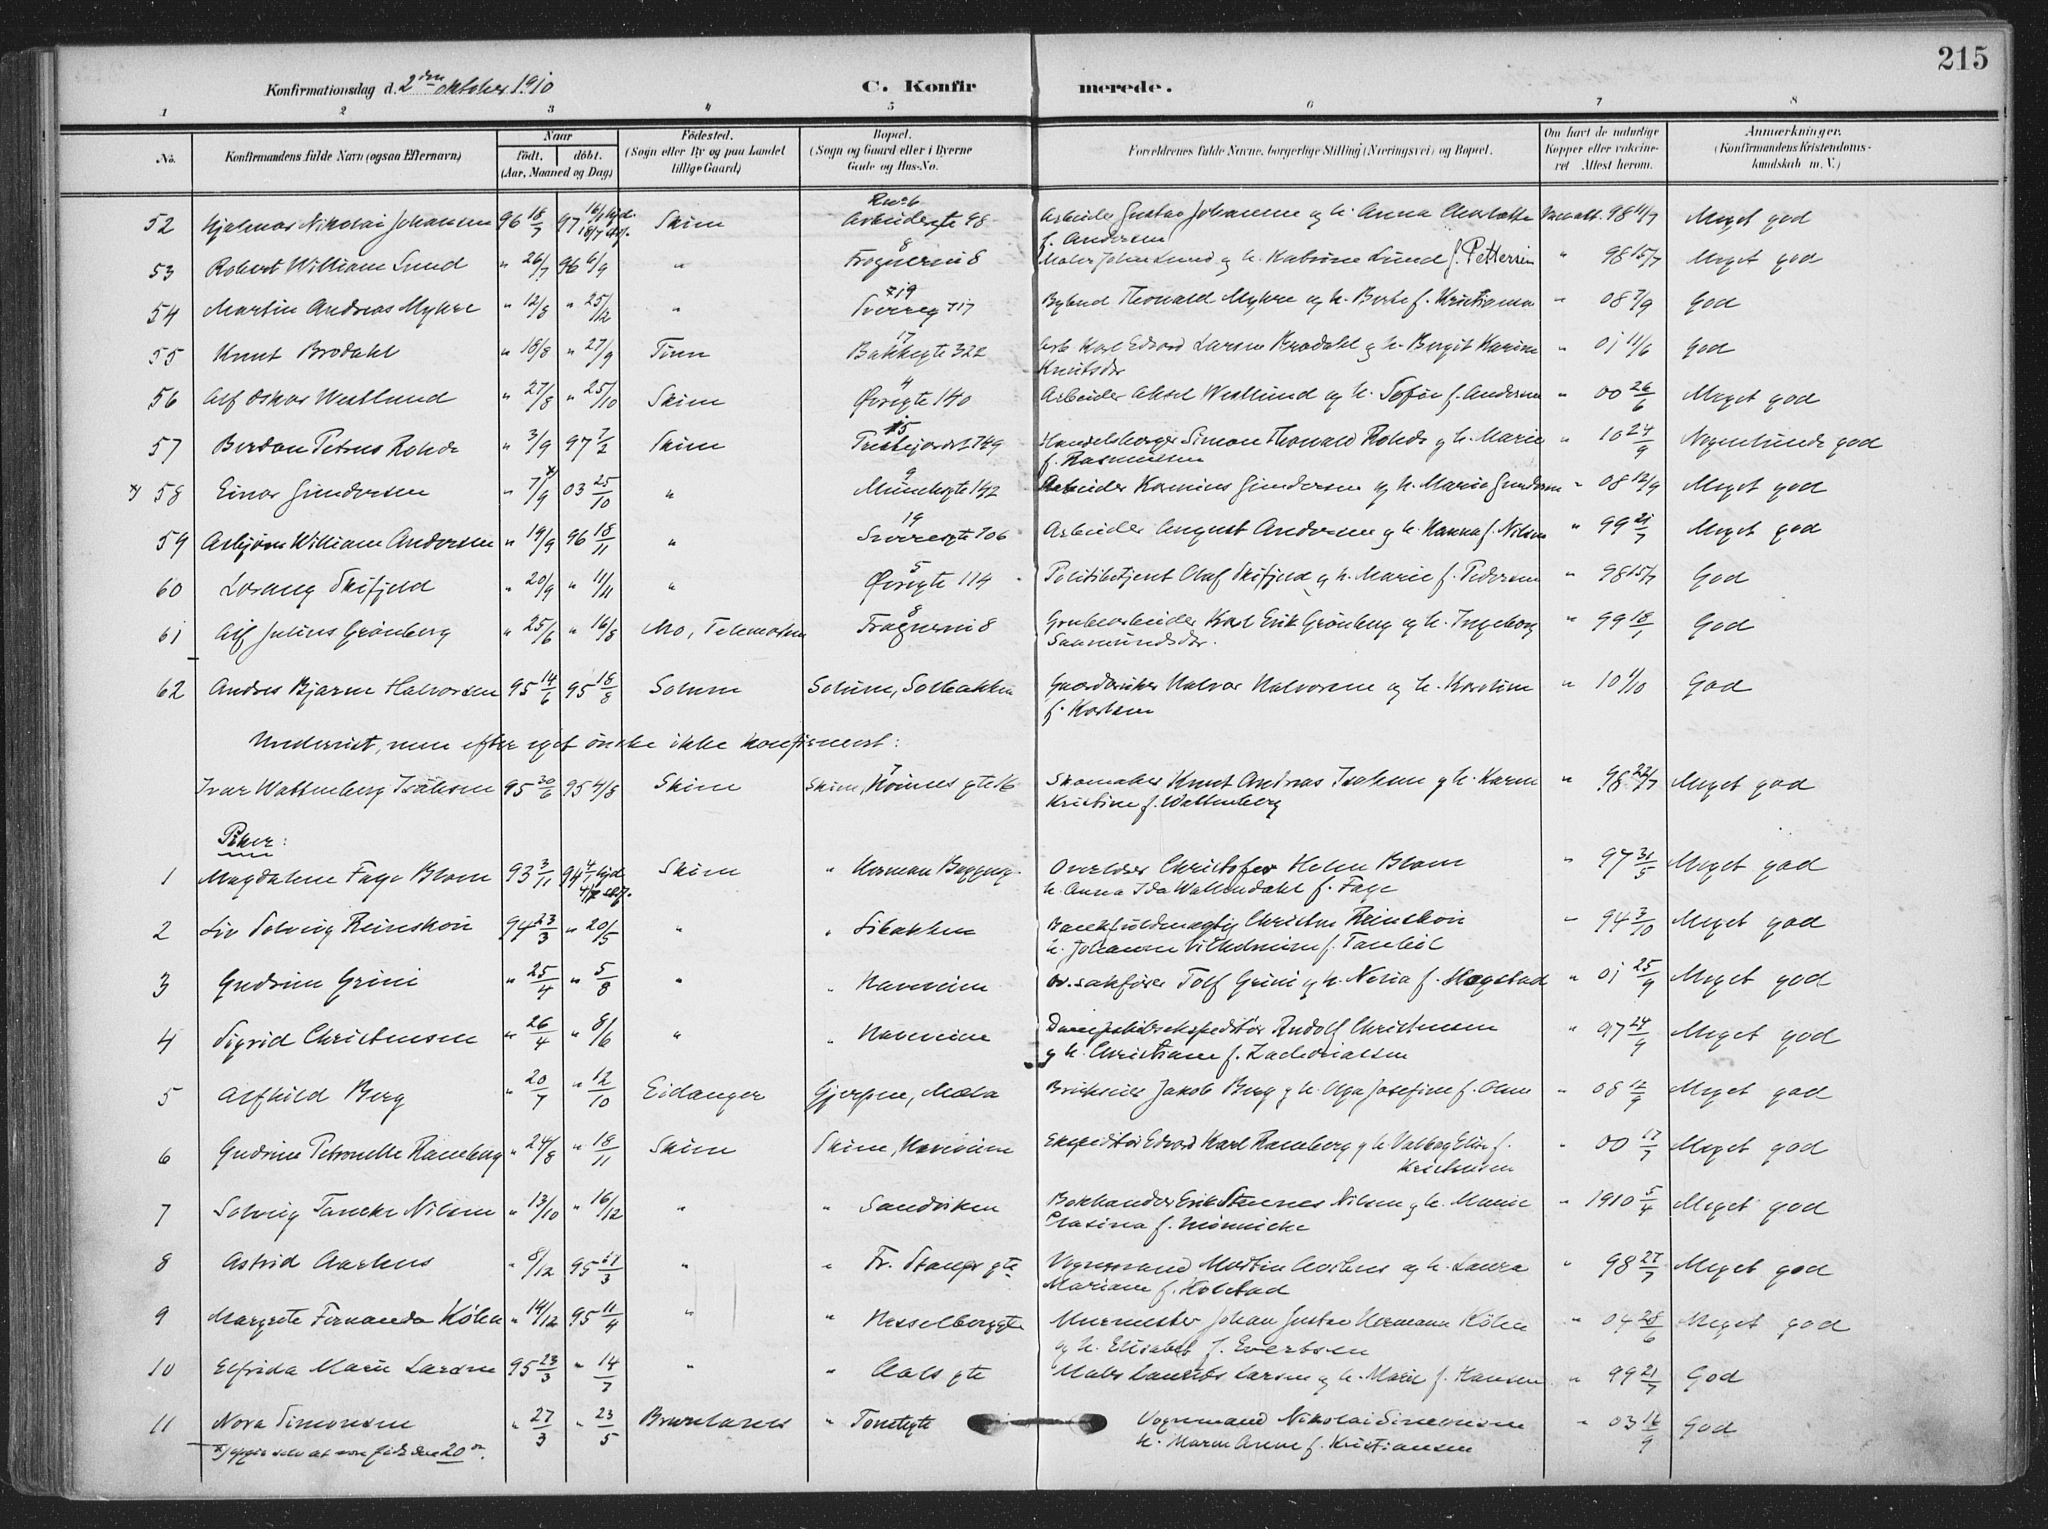 215
Konfirmationsdag d. 2den oktober 1910
C. Konfirmerede.
1 2 3 4 5 6 7 8
No. Konfirmandens fulde Navn (ogsaa Efternavn) Naar födt. döbt. (Aar, Maaned og Dag) Födested. (Sogn eller By og paa Landet tillige Gaard) Bopæl. (Sogn og Gaard eller i Byerne Gade og Hus-No. Forældrenes fulde Navne, borgerlige Stilling (Næringsvei) og Bopæl. Om havt de naturlige Kopper eller vakcineret Attest herom. Anmærkninger. (Konfirmandens Kristendomskundskab m. V.)
52 Hjalmar Nikolai Johansen 96 18/7 97 16/1 hjd. Skien Arbeidergte 98 Arbeider Gustav Johansen og h. Anna Charlotte f. Andersen 98 Meget god
53 Robert William Lund " 26/7 96 6/9 " 8 Maler Johan Lund og h. Katrine Lund f. Pettersen " 98 15/7 Meget god
54 Martin Andreas Myhre " 12/8 " 25/12 " 19 Bybud Thorvald Myhre og h. Berte f. Kristiansen " 08 7/9 God
55 Knut Brodahl " 18/8 " 27/9 Tinn 17 Bakkegte 322 Arb. Karl Edvard Larsen Brodahl og h. Birgit Karine Knutsdr " 01 11/6 God
56 Alf Oskar Westlund " 27/8 " 25/10 Skien 4 Øvregte 140 Arbeider Aksel Westlund og h. Sofie f. Andersen " 00 26/6 Meget god
57 Petrus Rohde " 3/9 97 7/2 Skien 15 Handelsborger Simon Thorvald Rohde og h. Marie f. Rasmussen " 10 24/9 Nogenlunde god
x) 58 Einar Gundersen " 7/9 x 03 25/10 " 9 Munchsgte 142 Arbeider Gundersen og h. Marie Gundersen " 08 12/9 Meget god
59 Asbjørn William Andersen " 19/9 96 18/11 " 19 Sverresgte 706 Arbeider August Andersen og h. Hanna f. Nilsen " 99 21/7 Meget god
60 Lorang Skifjeld " 20/9 " 11/11 " 5 Øvregte 114 Politibetjent Olaf Skifjeld og h. Marie f. Pedersen " 98 15/7 God
61 Alf Julius Grönberg " 25/6 " 16/8 Mo, Telemarken 8 Grubearbeider Karl Erik Grönberg og h. Ingeborg Saamundsdr. " 99 18/1 God
62 Andres Bjarne Halvorsen 95 14/6 95 18/8 Solum Solum, Solbakken Gaardbruker Halvor Halvorsen og h. Karoline f. Karlsen " 10 1/10 God
Undervist, men efter eget ønske ikke konfirmert:
Ivar Wattenberg Isaksen 95 30/6 95 4/8 Skien Skien, Skomaker Knut Andreas Isaksen og h. Karen Kristine f. Wattenberg " 98 22/7 Meget god
Piker:
1 Magdalene Faye Blom 93 3/11 94 4/1 hjd. Skien " Herman Baggersg. Overlærer Christofer Blom h. Anna Ida Wallendahl f. Faye " 97 31/5 Meget god
2 Liv Solveig Reinskou 94 23/3 " 20/5 " " Libakken Bankfuldmægtig Christen Reinskou h. Johanne Vilhelmine f. " 94 3/10 Meget god
3 Gudrun Grini " 25/4 " 5/8 " " Haveveien Or. sakfører Tolf Grini og h. f. Hogstad " 01 25/9 Meget god
4 Sigrid Christensen " 26/4 " 8/6 " " Haveveien Dampskibsekspeditør Rudolf Christensen og h. Christiane f. Zachariassen " 97 24/9 Meget god
5 Alfhild Berg " 20/7 " 12/10 Eidanger Gjerpen, Mæla Jakob Berg og h. Olga Josefine f. Olsen " 08 12/9 Meget god
6 Gudrun Petronelle Ramberg " 24/8 " 18/11 Skien Skien, Haveveien Ekspeditør Edvard Karl Ramberg og h. Valborg Elise f. Kristensen " 00 17/7 Meget god
7 Solveig Tancke Nilsen " 13/10 " 16/12 " " Sandviken Bokhandler Erik Steenes Nilsen og h. Marie Clasina f. Mönniche " 1910 5/4 Meget god
8 Astrid Aarhus " 8/12 95 /3 " " Fr. Stangs gte Vognmand Martin Aarhus og h. Laura Mariane f. Holstad " 98 27/7 Meget god
9 Margrete Fernanda Kölen " 14/12 95 11/4 " " Hesselberggte Murmester Johan Gustav Hermann Kölen og h. Elisabet f. Evertsen " 04 28/6 Meget god
10 Elfrida Marie Larsen 95 23/3 " 14/7 " " Aals gte Maler Laurits Larsen og h. Marie f. Hansen " 99 21/7 God
11 Nora Simonsen " 27/3 " 23/5 Brunlanes " Vognmand Nikolai Simonsen h. Maren Anne f. Kristiansen " 03 16/9 God
x) opgir selv at være født den 20de.